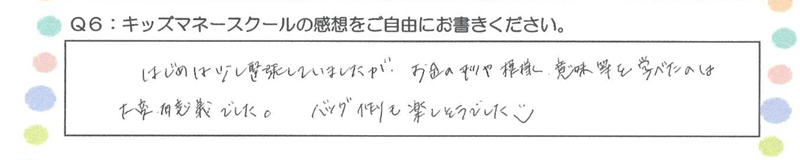 Q6：キッズマネースクールの感想をご自由にお書きください。
はじめは少し緊張していましたが、お金の形や模様、意味等を学べたのは
大変有意義でした。 バッグ作りも楽しそうでした